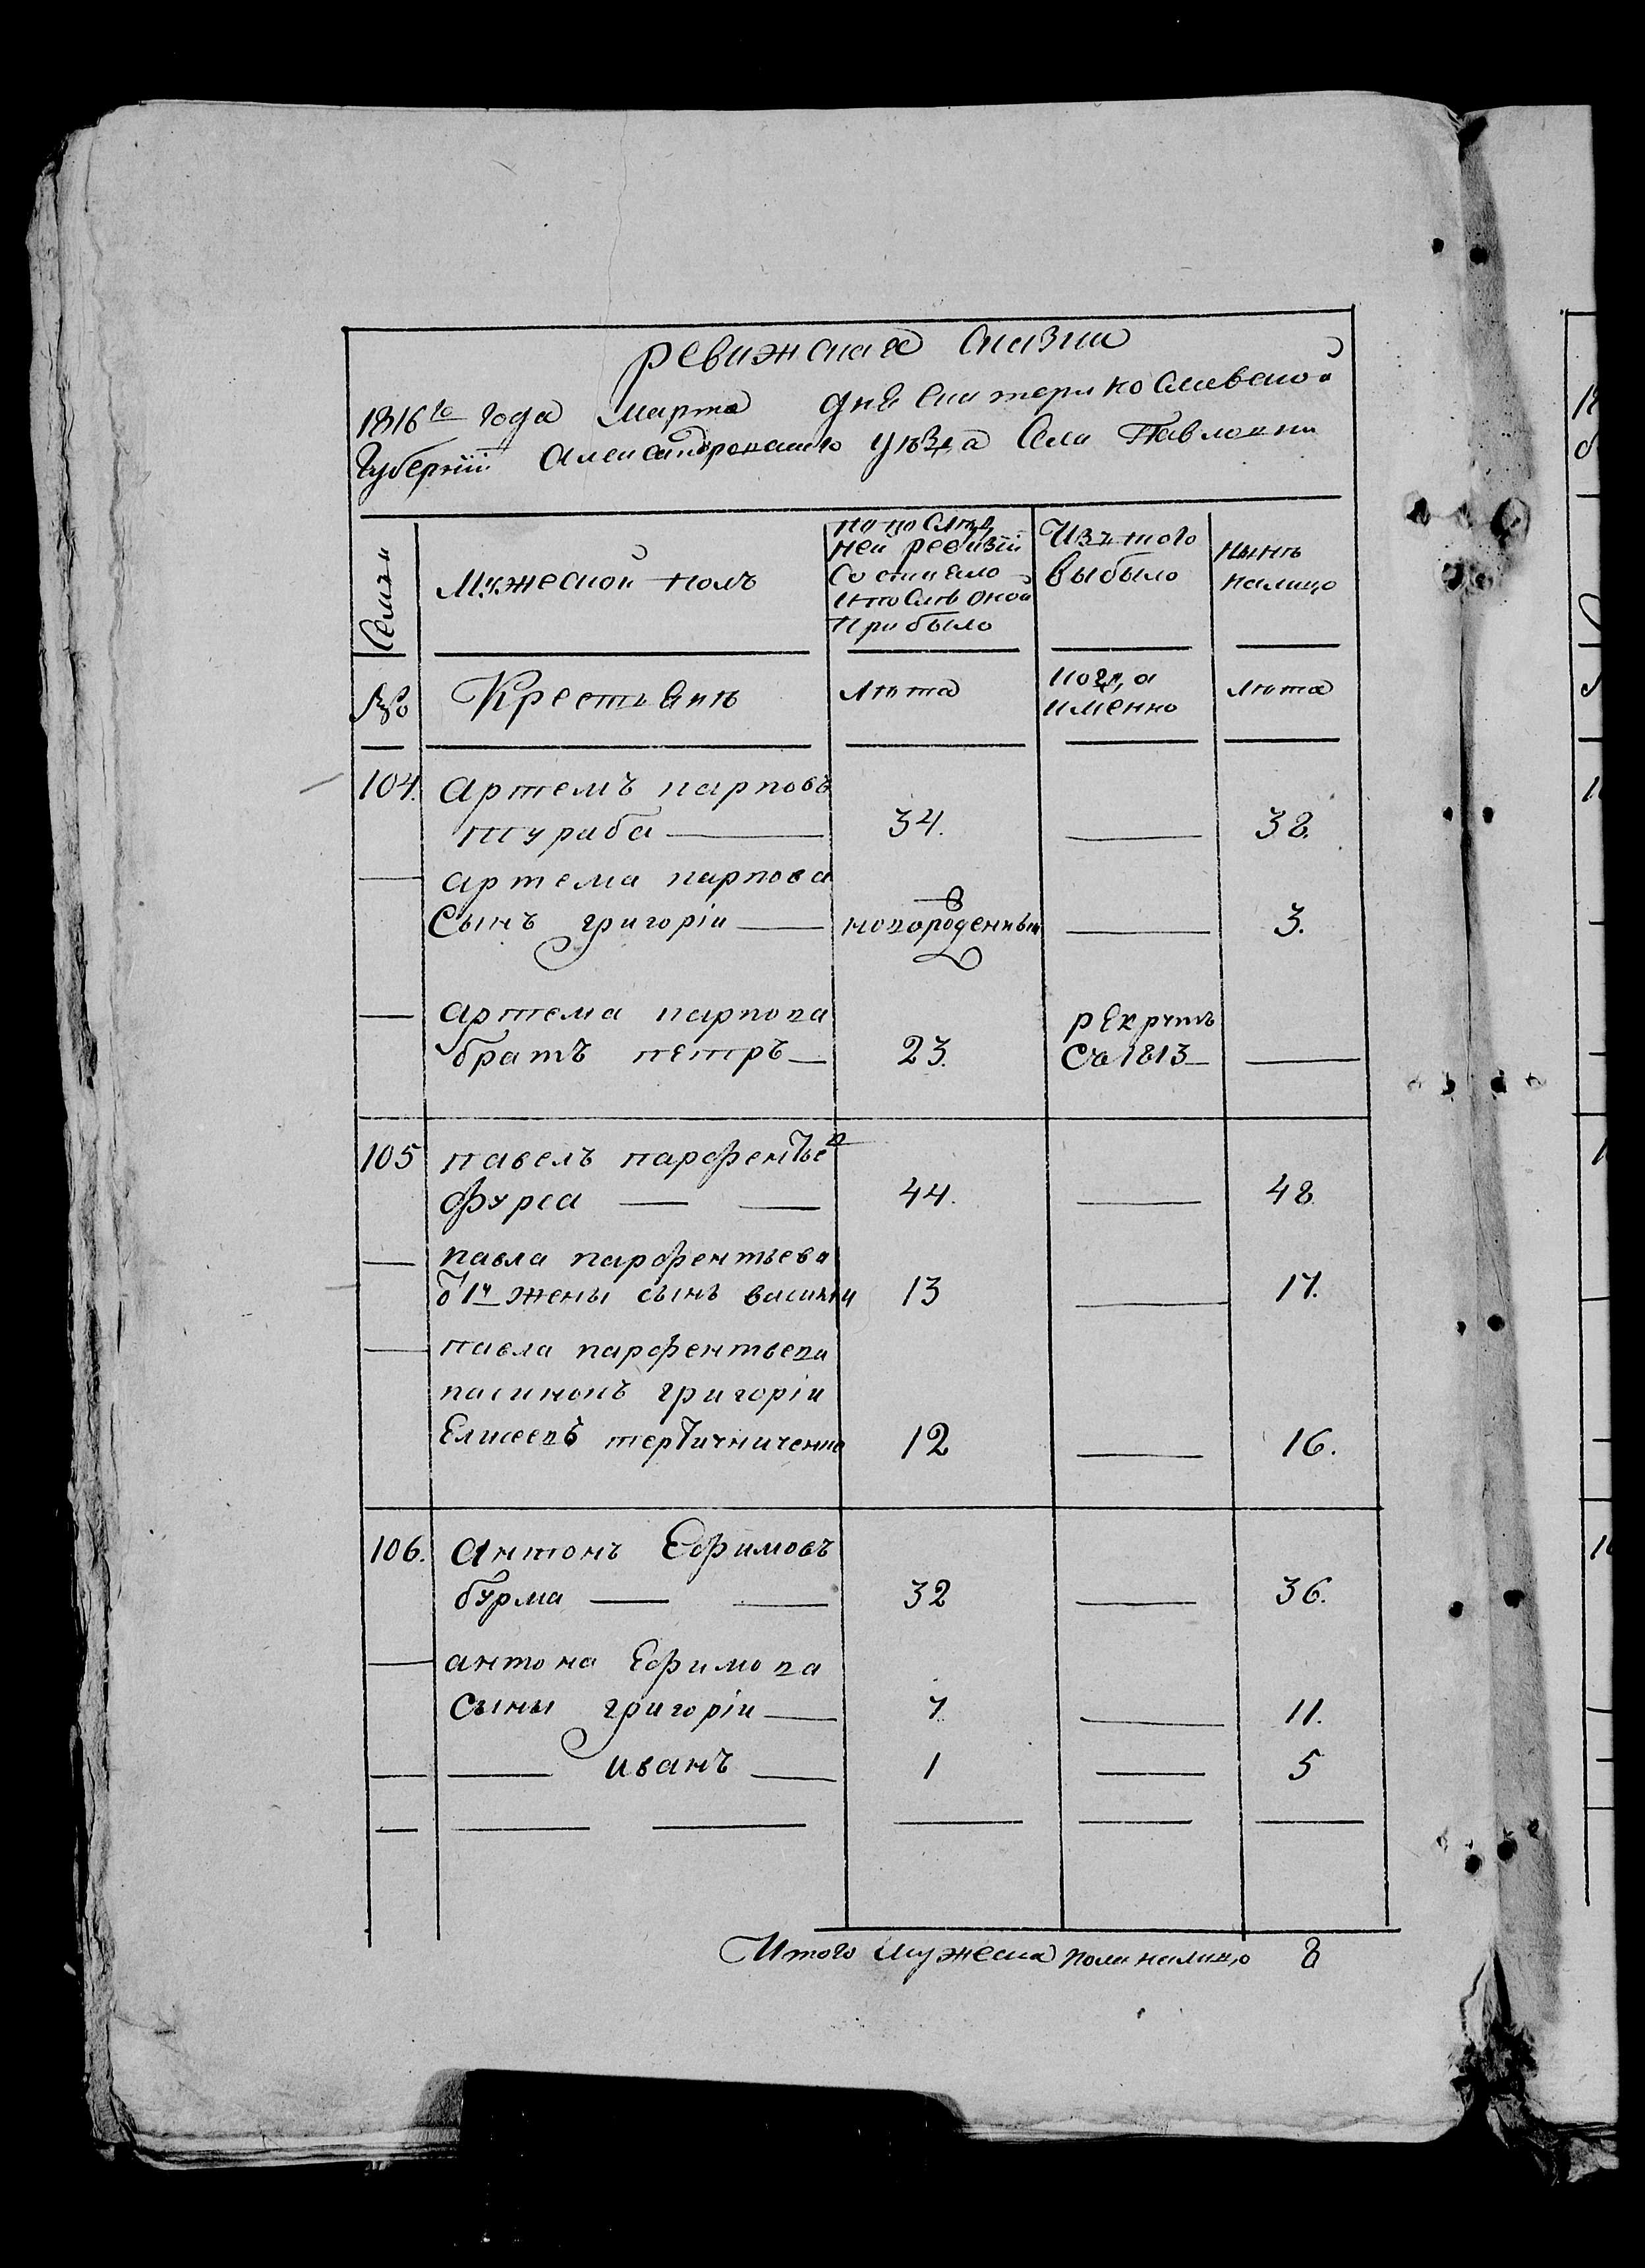 ревижская сказка
1816го Года марта дня екатеринославской
Губернiи Александровскаго уѣзда Села Павловки
Семьи
Мужеской полъ
по послѣд
ней ревизiи
Состояло
и послѣ оной
Прибыло
Изъ того
выбыло
нынѣ
налицо
№
Крестьянѣ
лѣта
когда
именно
лѣта
104. артемъ карповъ
34. 38.
артема карпова
Сынъ григорiи новорожденныи 3.
артема карпова рекрутъ
братъ петръ 23. Съ 1813
105 павелъ парфентьев
фурса 44. 48
павла парфентьева
о 1й жены сынъ василiи 13 17.
павла парфентьева
пасинокъ григорiи
Елисеевъ 12 16.
106. антонъ Ефимовъ
бурма 32 36.
антона Ефимова
Сыны григорiи 7 11.
иванъ 1 5
Итого мужеска пола налицо 8